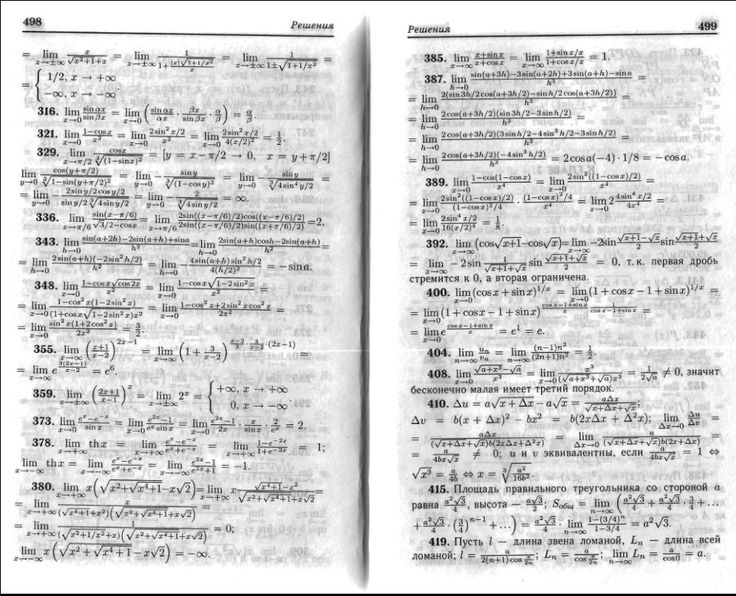 498 Решения
= lim x→±∞ x/(√(x²+1)+x) = lim x→±∞ 1/(1+|x|√(1+1/x²)/x) = lim x→±∞ 1/(1±√(1+1/x²)) =
= { 1/2, x → +∞
−∞, x → −∞
316. lim x→0 sin αx/sin βx = lim x→0 (sin αx/αx · βx/sin βx · α/β) = α/β.
321. lim x→0 (1−cos x)/x² = lim x→0 2sin² x/2 / x² = lim x→0 2sin² x/2 / 4(x/2)² = 1/2.
329. lim x→π/2 cos x/∛((1−sin x)²) = [y = x − π/2 → 0, x = y+π/2]
lim y→0 cos(y+π/2)/∛(1−sin(y+π/2)²) = lim y→0 − sin y/∛((1−cos y)²) = lim y→0 − sin y/∛(4sin⁴ y/2) =
= lim y→0 − 2sin y/2 cos y/2 / (sin y/2 ∛(4sin y/2)) = lim y→0 − 2/∛(4sin y/2) = ∞.
336. lim x→π/6 sin(x−π/6)/(√3/2−cos x) = lim x→π/6 2sin((x−π/6)/2)cos((x−π/6)/2) / 2sin((x+π/6)/2)sin((x−π/6)/2) = 2.
343. lim h→0 (sin(a+2h)−2sin(a+h)+sin a)/h² = lim h→0 (2sin(a+h)cos h−2sin(a+h))/h² =
= lim h→0 2sin(a+h)(−2sin² h/2)/h² = lim h→0 − 4sin(a+h)sin² h/2 / 4(h/2)² = −sin a.
348. lim x→0 (1−cos x√cos 2x)/x² = lim x→0 (1−cos x√(1−2sin² x))/x² =
= lim x→0 (1−cos² x(1−2sin² x))/((1+cos x√(1−2sin² x))x²) = lim x→0 (1−cos² x+2sin² x cos² x)/2x² =
= lim x→0 sin² x(1+2cos² x)/2x² = 3/2.
355. lim x→∞ ((x+1)/(x−2))^(2x−1) = lim x→∞ (1 + 3/(x−2))^((x−2)/3 · 3/(x−2) · (2x−1)) =
= lim x→∞ e^(3(2x−1)/(x−2)) = e⁶.
359. lim x→±∞ ((2x+1)/(x−1))^x = lim x→±∞ 2^x = { +∞, x → +∞
0, x → −∞.
373. lim x→0 (e^x−e^−x)/sin x = lim x→0 (e^2x−1)/(e^x sin x) = lim x→0 (e^2x−1)/2x · x/sin x · 2/e^x = 2.
378. lim x→+∞ th x = lim x→+∞ (e^x−e^−x)/(e^x+e^−x) = lim x→+∞ (1−e^−2x)/(1+e^−2x) = 1;
lim x→−∞ th x = lim x→−∞ (e^x−e^−x)/(e^x+e^−x) = lim x→−∞ (e^2x−1)/(e^2x+1) = −1.
380. lim x→+∞ x(√(x²+√(x⁴+1))−x√2) = lim x→+∞ x (√(x⁴+1)−x²)/(√(x²+√(x⁴+1))+x√2) =
= lim x→+∞ x/((√(x⁴+1)+x²)(√(x²+√(x⁴+1))+x√2)) =
= lim x→+∞ 1/((√(x²+1/x²)+x)(√(x²+√(x⁴+1))+x√2)) = 0;
lim x→−∞ x(√(x²+√(x⁴+1))−x√2) = −∞.
Решения 499
385. lim x→∞ (x+sin x)/(x+cos x) = lim x→∞ (1+sin x/x)/(1+cos x/x) = 1.
387. lim h→0 (sin(a+3h)−3sin(a+2h)+3sin(a+h)−sin a)/h³ =
= lim h→0 2(sin 3h/2 cos(a+3h/2)−sin h/2 cos(a+3h/2))/h³ =
= lim h→0 2cos(a+3h/2)(sin 3h/2−3sin h/2)/h³ =
= lim h→0 2cos(a+3h/2)(3sin h/2−4sin³ h/2−3sin h/2)/h³ =
= lim h→0 2cos(a+3h/2)(−4sin³ h/2)/h³ = 2cos a(−4) · 1/8 = −cos a.
389. lim x→0 (1−cos(1−cos x))/x⁴ = lim x→0 2sin²((1−cos x)/2)/x⁴ =
= lim x→0 2sin²((1−cos x)/2)/((1−cos x)²/4) · ((1−cos x)²/4)/x⁴ = lim x→0 2 4sin⁴ x/2 / 4x⁴ =
= lim x→0 2sin⁴ x/2 / 16(x/2)⁴ = 1/8.
392. lim x→∞ (cos√(x+1)−cos√x) = lim x→∞ −2sin (√(x+1)−√x)/2 sin (√(x+1)+√x)/2 =
= lim x→∞ −2sin 1/(√(x+1)+√x) sin (√(x+1)+√x)/2 = 0, т. к. первая дробь
стремится к 0, а вторая ограничена.
400. lim x→0 (cos x + sin x)^(1/x) = lim x→0 (1 + cos x − 1 + sin x)^(1/x) =
= lim x→0 (1 + cos x − 1 + sin x)^((cos x−1+sin x)/x · 1/(cos x−1+sin x)) =
= lim x→0 e^((cos x−1+sin x)/x) = e¹ = e.
404. lim n→∞ uₙ/vₙ = lim n→∞ (n−1)n²/(2n+1)n² = 1/2.
408. lim x→0 (√(a+x³)−√a)/x³ = lim x→0 x³/((√(a+x³)+√a)x³) = 1/(2√a) ≠ 0, значит
бесконечно малая имеет третий порядок.
410. Δu = a√(x+Δx) − a√x = aΔx/(√(x+Δx)+√x);
Δv = b(x + Δx)² − bx² = b(2xΔx + Δ²x); lim Δx→0 Δu/Δv =
= aΔx/((√(x+Δx)+√x)b(2xΔx+Δ²x)) = lim Δx→0 a/((√(x+Δx)+√x)b(2x+Δx)) =
= a/(4bx√x) ≠ 0; u и v эквивалентны, если a/(4bx√x) = 1 ⇔
√x³ = a/4b ⇔ x = ∛(a²/16b²).
415. Площадь правильного треугольника со стороной a
равна a²√3/4, высота – a√3/2; Sобщ = lim n→∞ (a²√3/4 + a²√3/4 · 3/4 + …
+ a²√3/4 · (3/4)^(n−1) + …) = a²√3/4 · lim n→∞ (1−(3/4)ⁿ)/(1−3/4) = a²√3.
419. Пусть l – длина звена ломаной, Lₙ – длина всей
ломаной; l = a/(2(n+1)cos π/2n); Lₙ = a/(cos π/2n); lim n→∞ Lₙ = a/cos 0 = a.